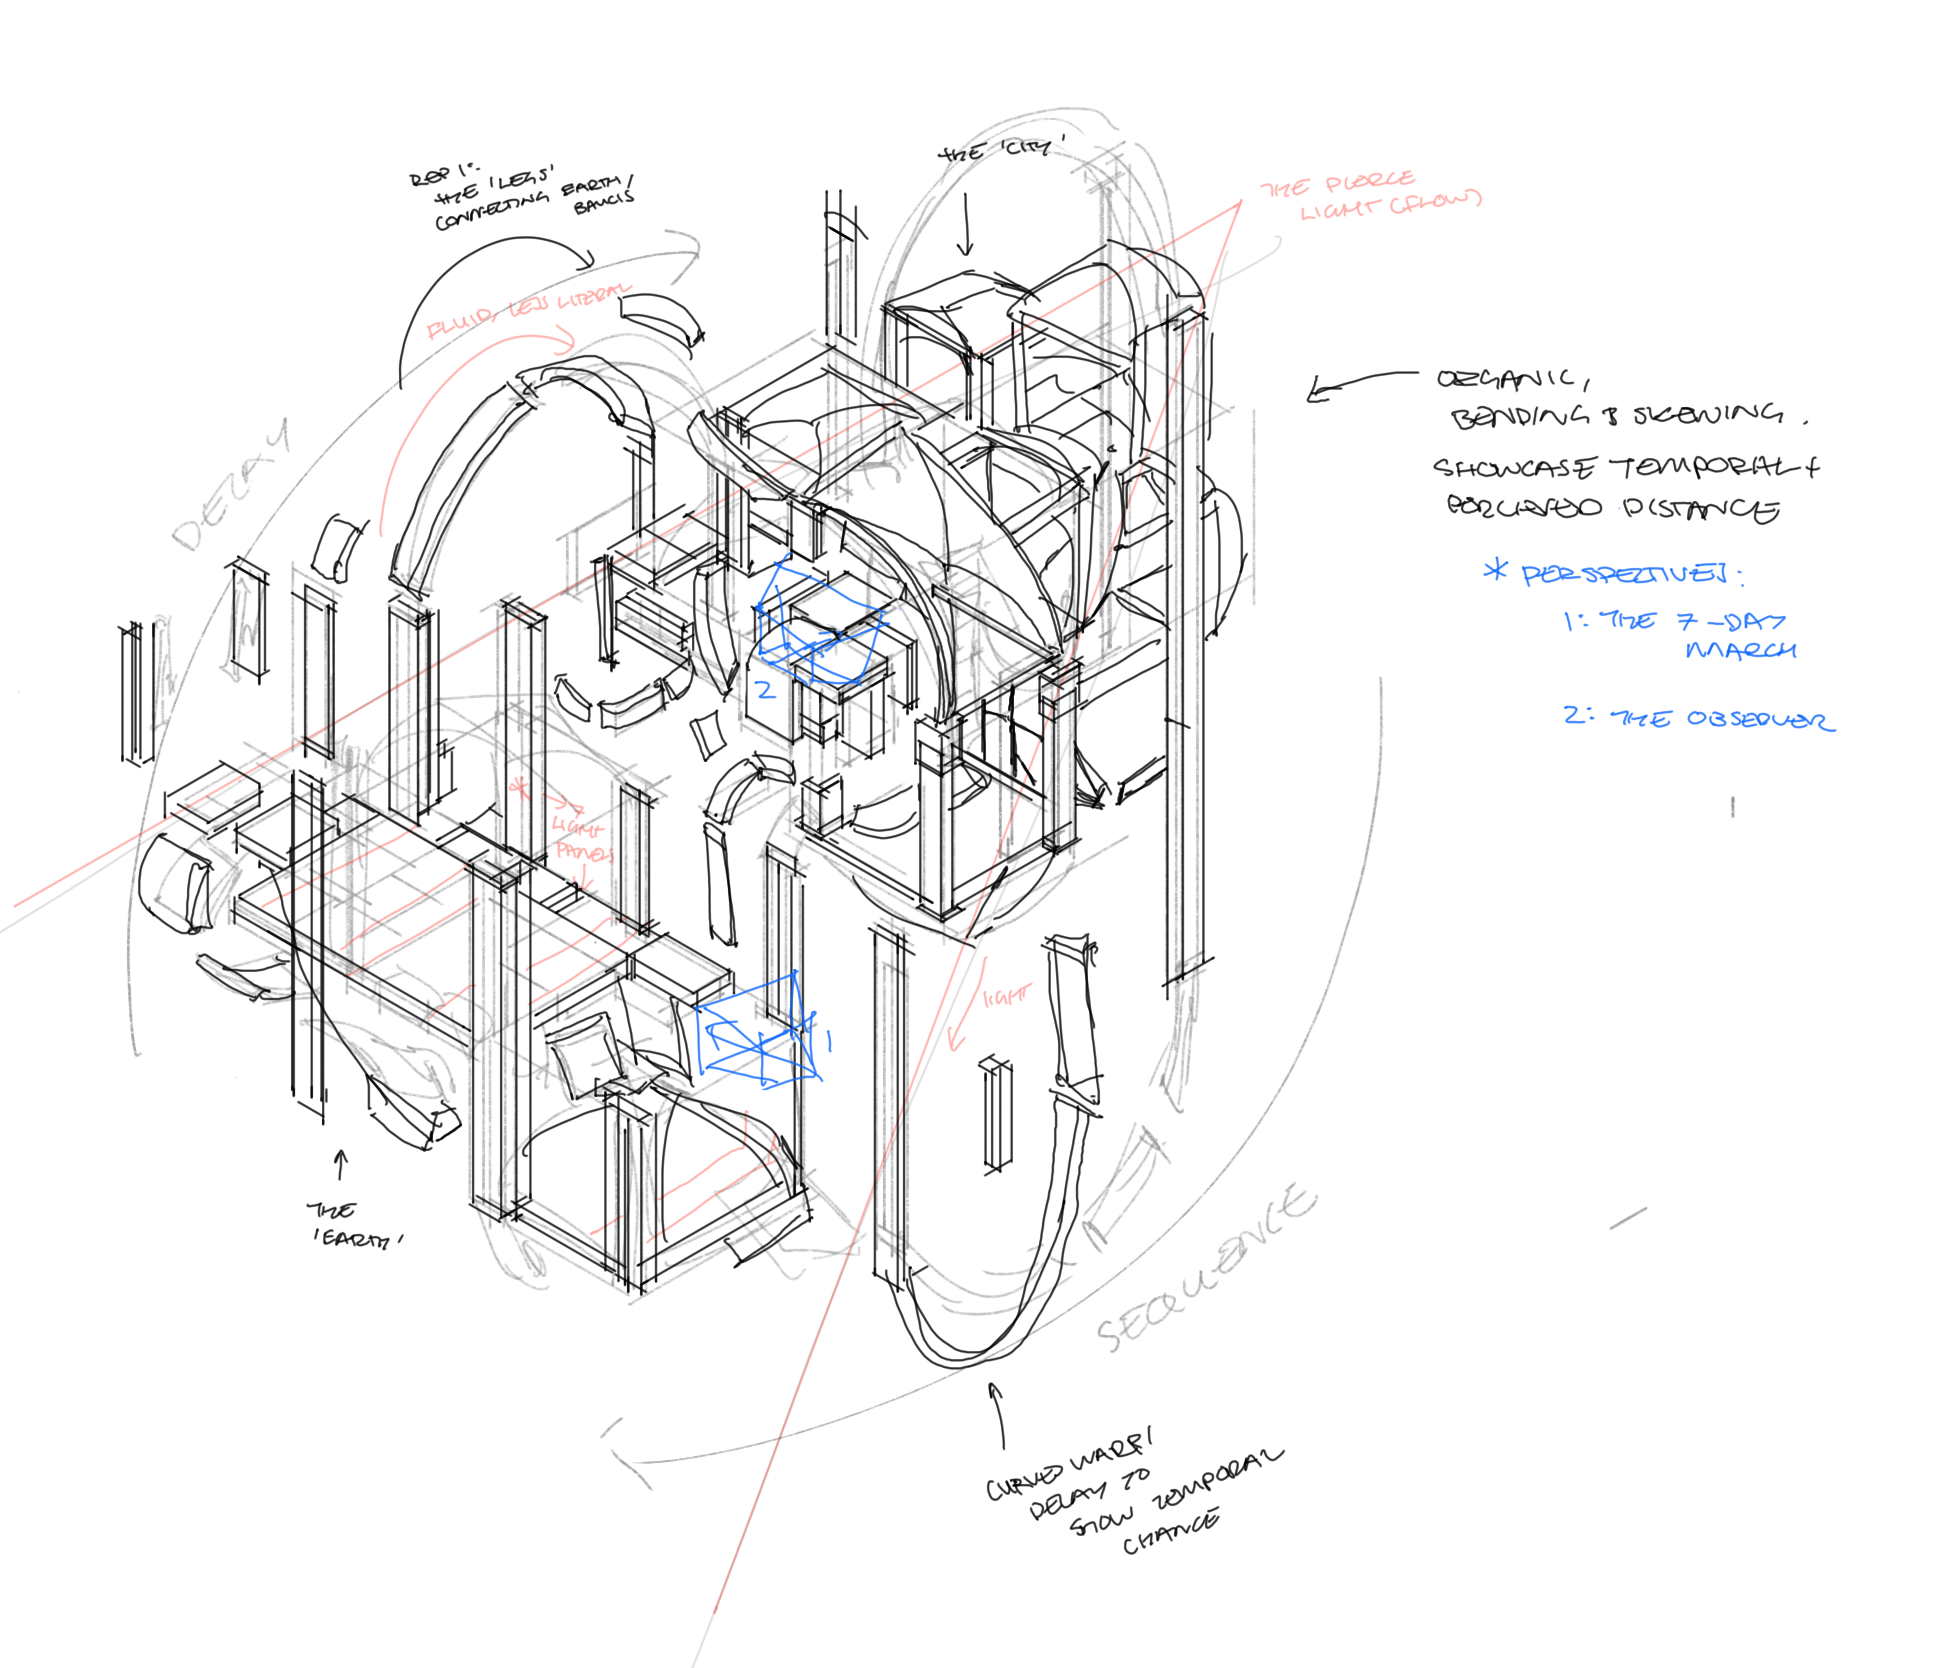 THE 'CITY'
REP 1:
THE 'LEGS'
CONNECTING EARTH/
BAUCIS
THE PIERCE
LIGHT (FLOW)
FLUID, LESS LITERAL
DELAY
ORGANIC,
BENDING & SKEWING.
SHOWCASE TEMPORAL +
PERCIEVED DISTANCE
* PERSPECTIVES:
1: THE 7-DAY
MARCH
2: THE OBSERVER
2
* → 7
LIGHT
PANELS
1
LIGHT
THE
'EARTH'
SEQUENCE
CURVED WARP/
DELAY TO
SHOW TEMPORAL
CHANGE